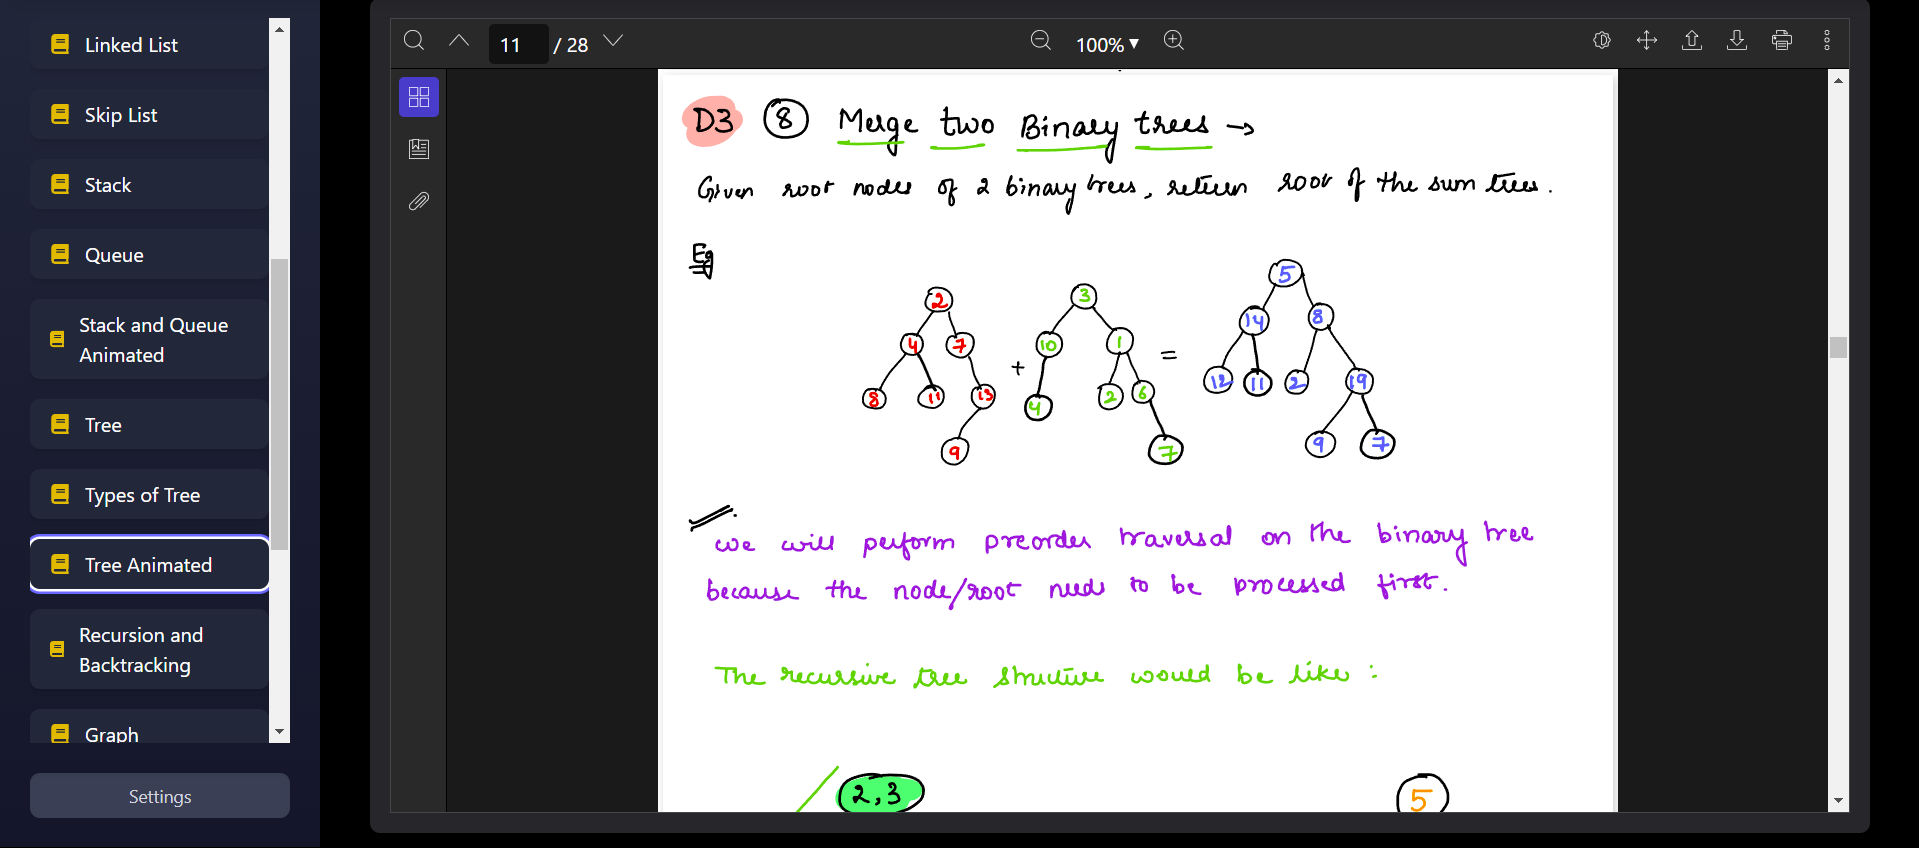 Linked List
Skip List
Stack
Queue
Stack and Queue
Animated
Tree
Types of Tree
Tree Animated
Recursion and
Backtracking
Graph
Settings
11 / 28
100%
D3 8 Merge two Binary trees →
Given root nodes of 2 binary trees, return root of the sum trees.
Eg
2 3 5
4 7 10 1 14 8
+ =
8 11 13 4 2 6 12 11 2 19
9 7 9 7
we will perform preorder traversal on the binary tree
because the node/root needs to be processed first.
The recursive tree structure would be like :
2,3 5